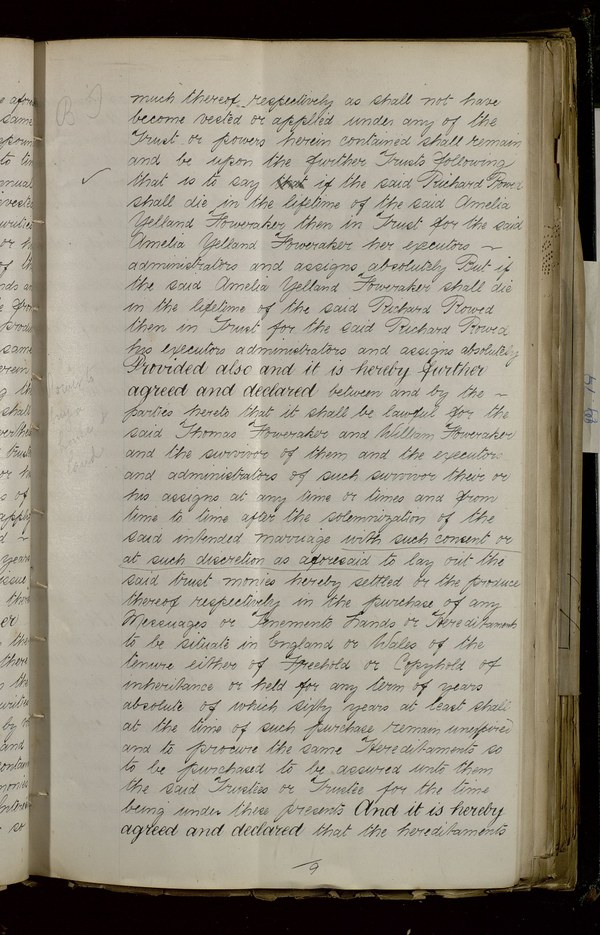 much thereof respectively as shall not have
become vested or applied under any of the
Trust or powers herein contained shall remain
and be upon the further Trusts following
that is to say that if the said Richard Rowed
shall die in the lifetime of the said Amelia
Yelland Floweraker then in Trust for the said
Amelia Yelland Floweraker her executors ~
administrators and assigns absolutely But if
the said Amelia Yelland Floweraker shall die
in the lifetime of the said Richard Rowed
then in Trust for the said Richard Rowed
his executors administrators and assigns absolutely
Provided also and it is hereby further
agreed and declared between and by the ~
parties hereto that it shall be lawful for the
said Thomas Floweraker and William Floweraker
and the survivor of them and the executors
and administrators of such survivor their or
his assigns at any time or times and from
time to time after the solemnization of the
said intended marriage with such consent or
at such discretion as aforesaid to lay out the
said trust monies hereby settled or the produce
thereof respectively in the purchase of any
Messuages or Tenements Lands or Hereditaments
to be situate in England or Wales of the
tenure either of Freehold or Copyhold of
inheritance or held for any term of years
absolute of which sixty years at least shall
at the time of such purchase remain unexpired
and to procure the same Hereditaments so
to be purchased to be assured unto them
the said Trustees or Trustee for the time
being under these presents And it is hereby
agreed and declared that the hereditaments
9